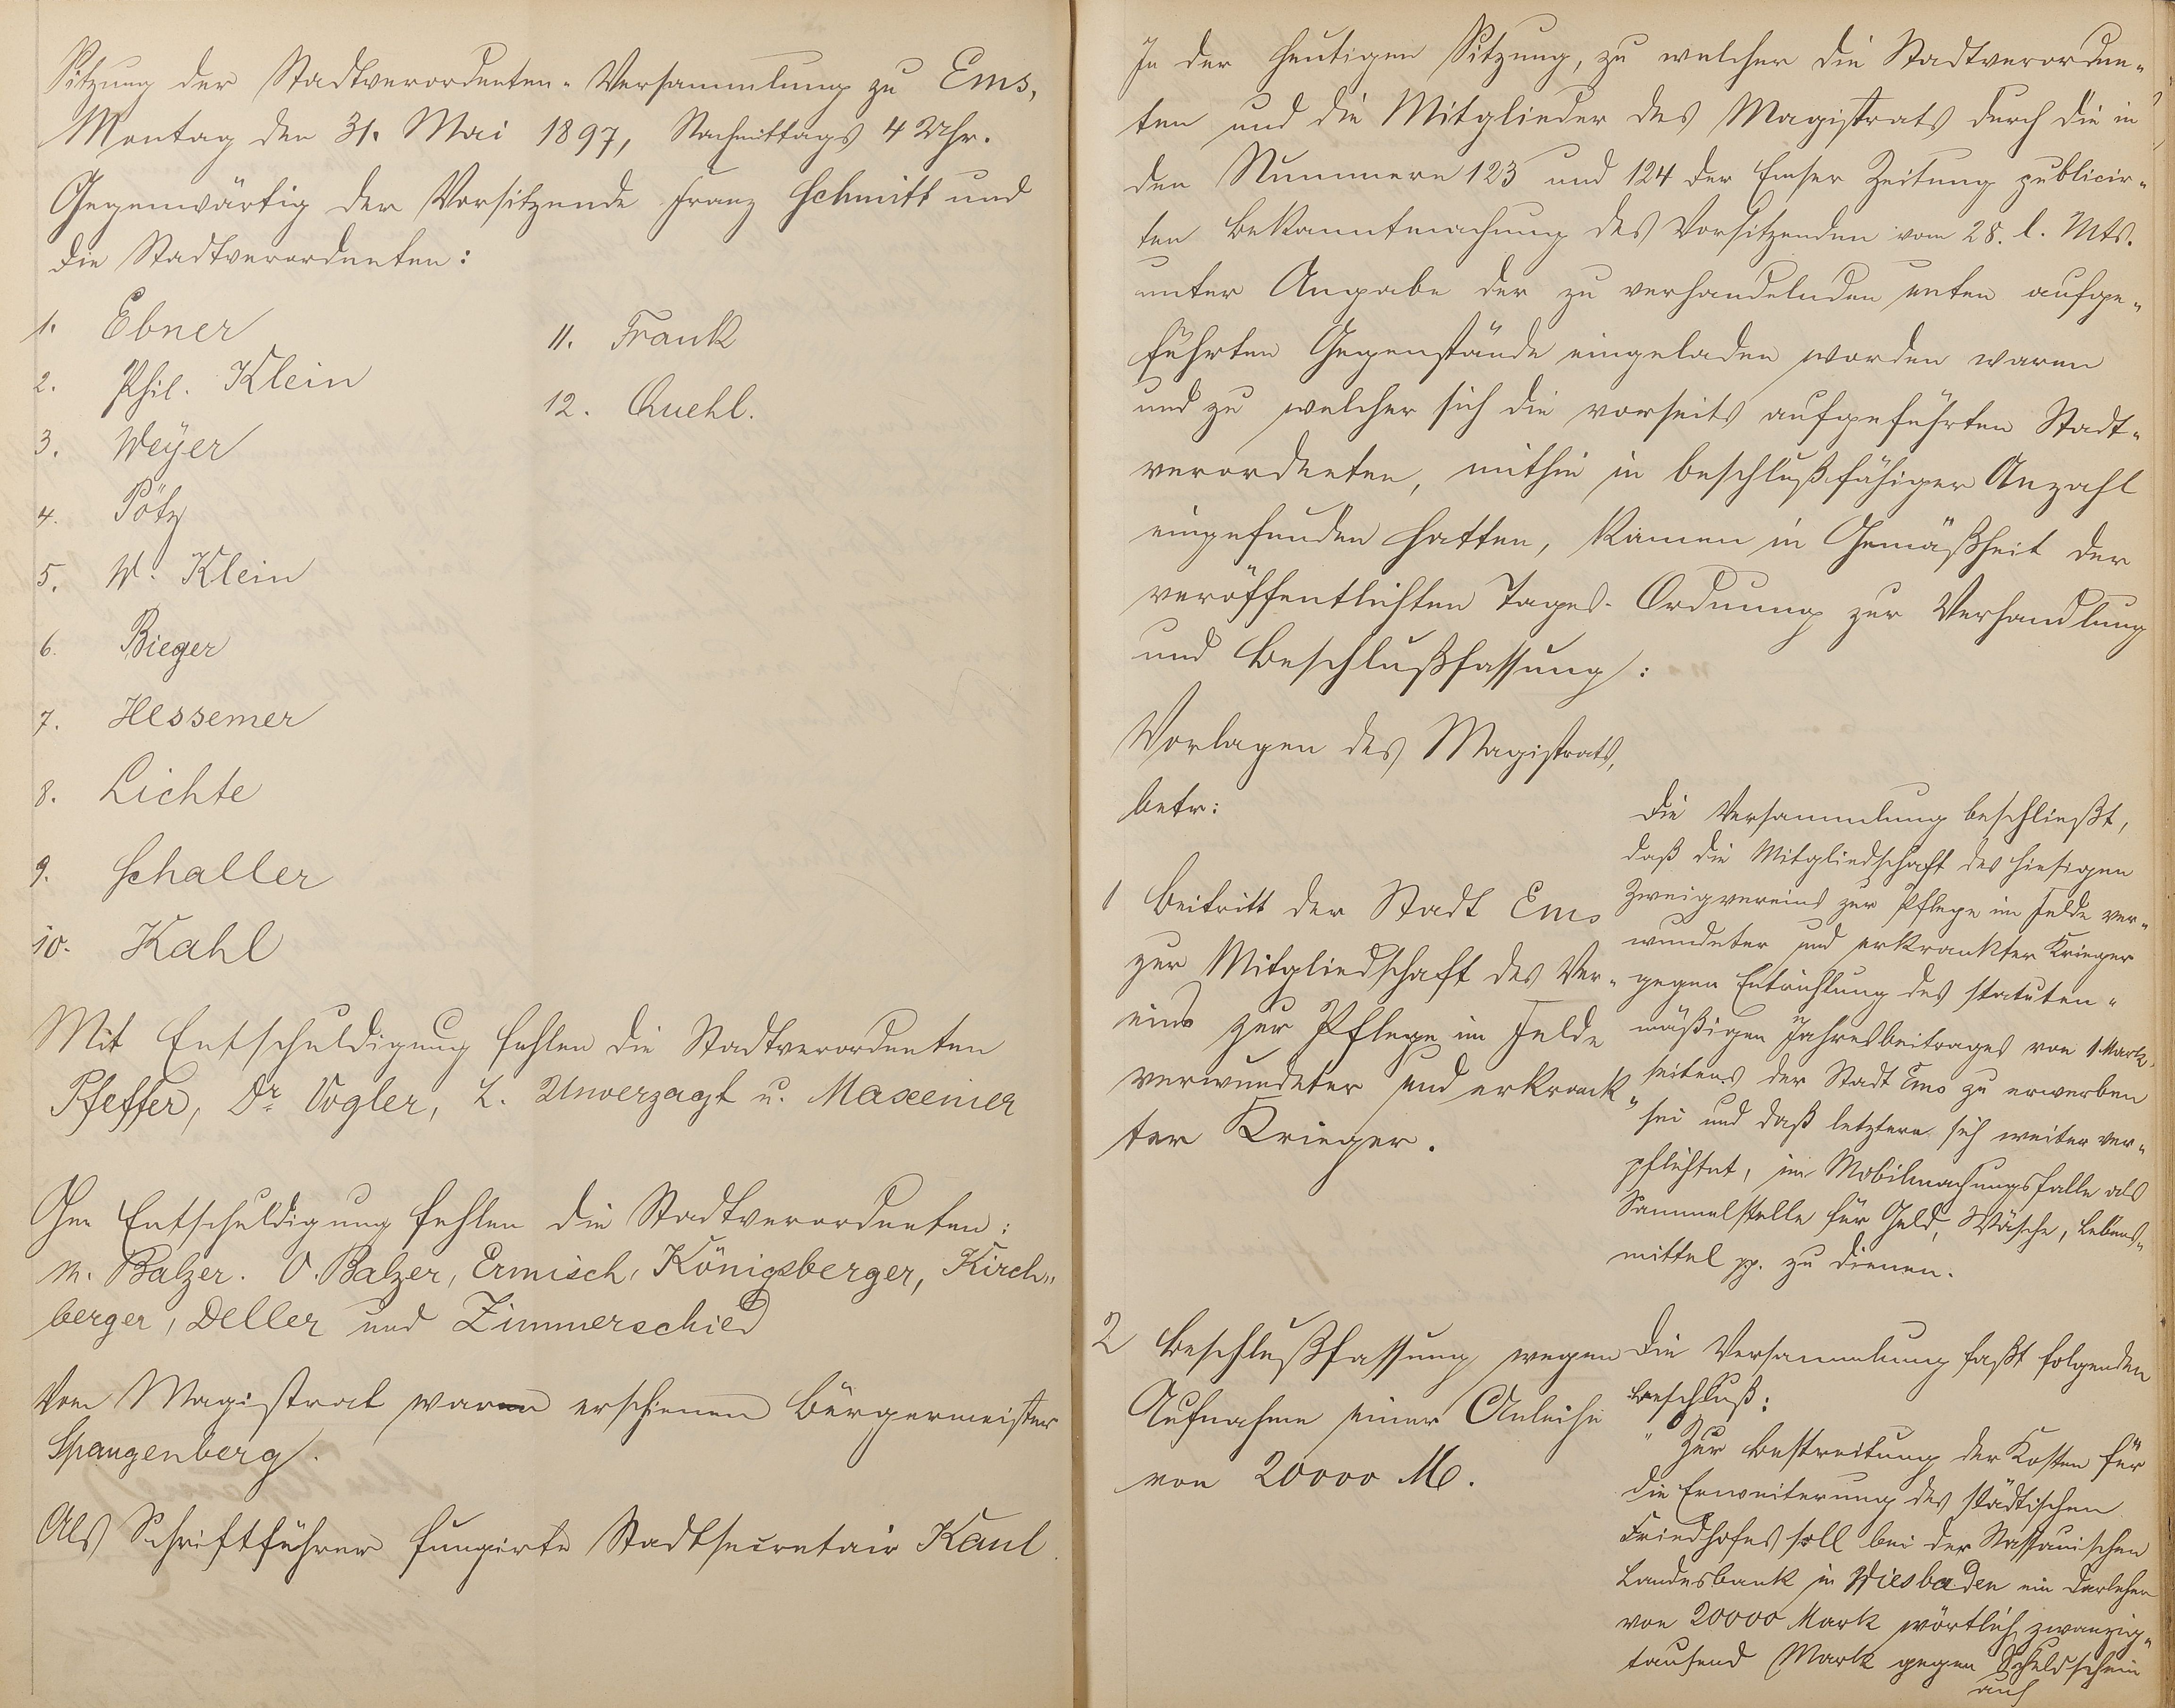 Sitzung der Stadtverordneten-Versammlung zu Ems,
Montag den 31. Mai 1897, Nachmittags 4 Uhr.
Gegenwärtig der Vorsitzende Franz Schmitt und
die Stadtverordneten:
1. Ebner
2. Phil. Klein
3. Weÿer
4. Pötz
5. W. Klein
6. Bieger
7. Hessemer
8. Lichte
9. Schaller
10. Kahl
11. Frank
12. Quehl.
Mit Entschuldigung fehlen die Stadtverordneten
Pfeffer, Dr Vogler, L. Unverzagt u. Maxeiner
Ohne Entschuldigung fehlen die Stadtverordneten:
M. Balzer. O. Balzer, Ermisch, Königsberger, Kirch-
berger, Deller und Zimmerschied
Vom Magistrat waren erschienen Bürgermeister
Spangenberg.
Als Schriftführer fungirte Stadtsecretair Kaul.
In der heutigen Sitzung, zu welcher die Stadtverordne-
ten und die Mitglieder des Magistrats durch die in
den Nummern 123 und 124 der Emser Zeitung publicir-
ten Bekanntmachung des Vorsitzenden vom 28. l. Mts.
unter Angabe der zu verhandelnden unten aufge-
führten Gegenstände eingeladen worden waren
und zu welcher sich die vorseits aufgeführten Stadt-
verordneten, mithin in beschlußfähiger Anzahl
eingefunden hatten, kamen in Gemäßheit der
veröffentlichten Tages-Ordnung zur Verhandlung
und Beschlußfassung:
Vorlagen des Magistrats,
betr:
1 Beitritt der Stadt Ems
zur Mitgliedschaft des Ver-
eins zur Pflege im Felde
verwundeter und erkrank-
ter Krieger.
Die Versammlung beschließt,
daß die Mitgliedschaft des hiesigen
Zweigvereins zur Pflege im Felde ver-
wundeter und erkrankter Krieger
gegen Entrichtung des statuten-
mäßigen Jahresbeitrages von 1 Mark,
seitens der Stadt Ems zu erwerben
sei und daß letztere sich weiter ver-
pflichtet, im Mobilmachungsfalle als
Sammelstelle für Geld, Wäsche, Lebens-
mittel pp. zu dienen.
2 Beschlußfassung wegen
Aufnahme einer Anleihe
von 20000 M.
Die Versammlung faßt folgenden
Beschluß:
" Zur Bestreitung der Kosten für
die Erweiterung des städtischen
Friedhofes soll bei der Nassauischen
Landesbank in Wiesbaden ein Darlehen
von 20000 Mark wörtlich zwanzig-
tausend Mark gegen Schuldschein
auf